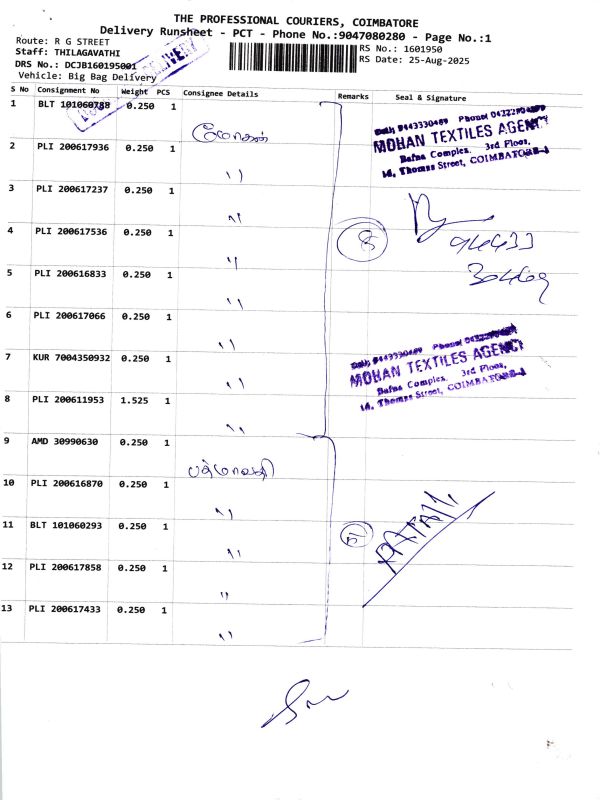 THE PROFESSIONAL COURIERS, COIMBATORE
Delivery Runsheet - PCT - Phone No.:9047080280 - Page No.:1
Route: R G STREET
RS No.: 1601950
Staff: THILAGAVATHI
RS Date: 25-Aug-2025
DRS No.: DCJB160195001
Vehicle: Big Bag Delivery
S No Consignment No Weight PCS Consignee Details Remarks Seal & Signature
1 BLT 101060788 0.250 1
மோகன்
2 PLI 200617936 0.250 1
"
3 PLI 200617237 0.250 1
"
4 PLI 200617536 0.250 1
"
5 PLI 200616833 0.250 1
"
6 PLI 200617066 0.250 1
"
7 KUR 7004350932 0.250 1
"
8 PLI 200611953 1.525 1
"
9 AMD 30990630 0.250 1
பத்மாவதி
10 PLI 200616870 0.250 1
"
11 BLT 101060293 0.250 1
"
12 PLI 200617858 0.250 1
"
13 PLI 200617433 0.250 1
"
8
5
MOHAN TEXTILES AGENCY
Bafna Complex, 3rd Floor,
14, Thomas Street, COIMBATORE-1
94433
30469
MOHAN TEXTILES AGENCY
Bafna Complex, 3rd Floor,
14, Thomas Street, COIMBATORE-1